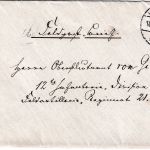 Feldpost brief
Herrn Oberstleutnant von Ge
12te Infanterie, Division
Feldartillerie, Regiment 21.